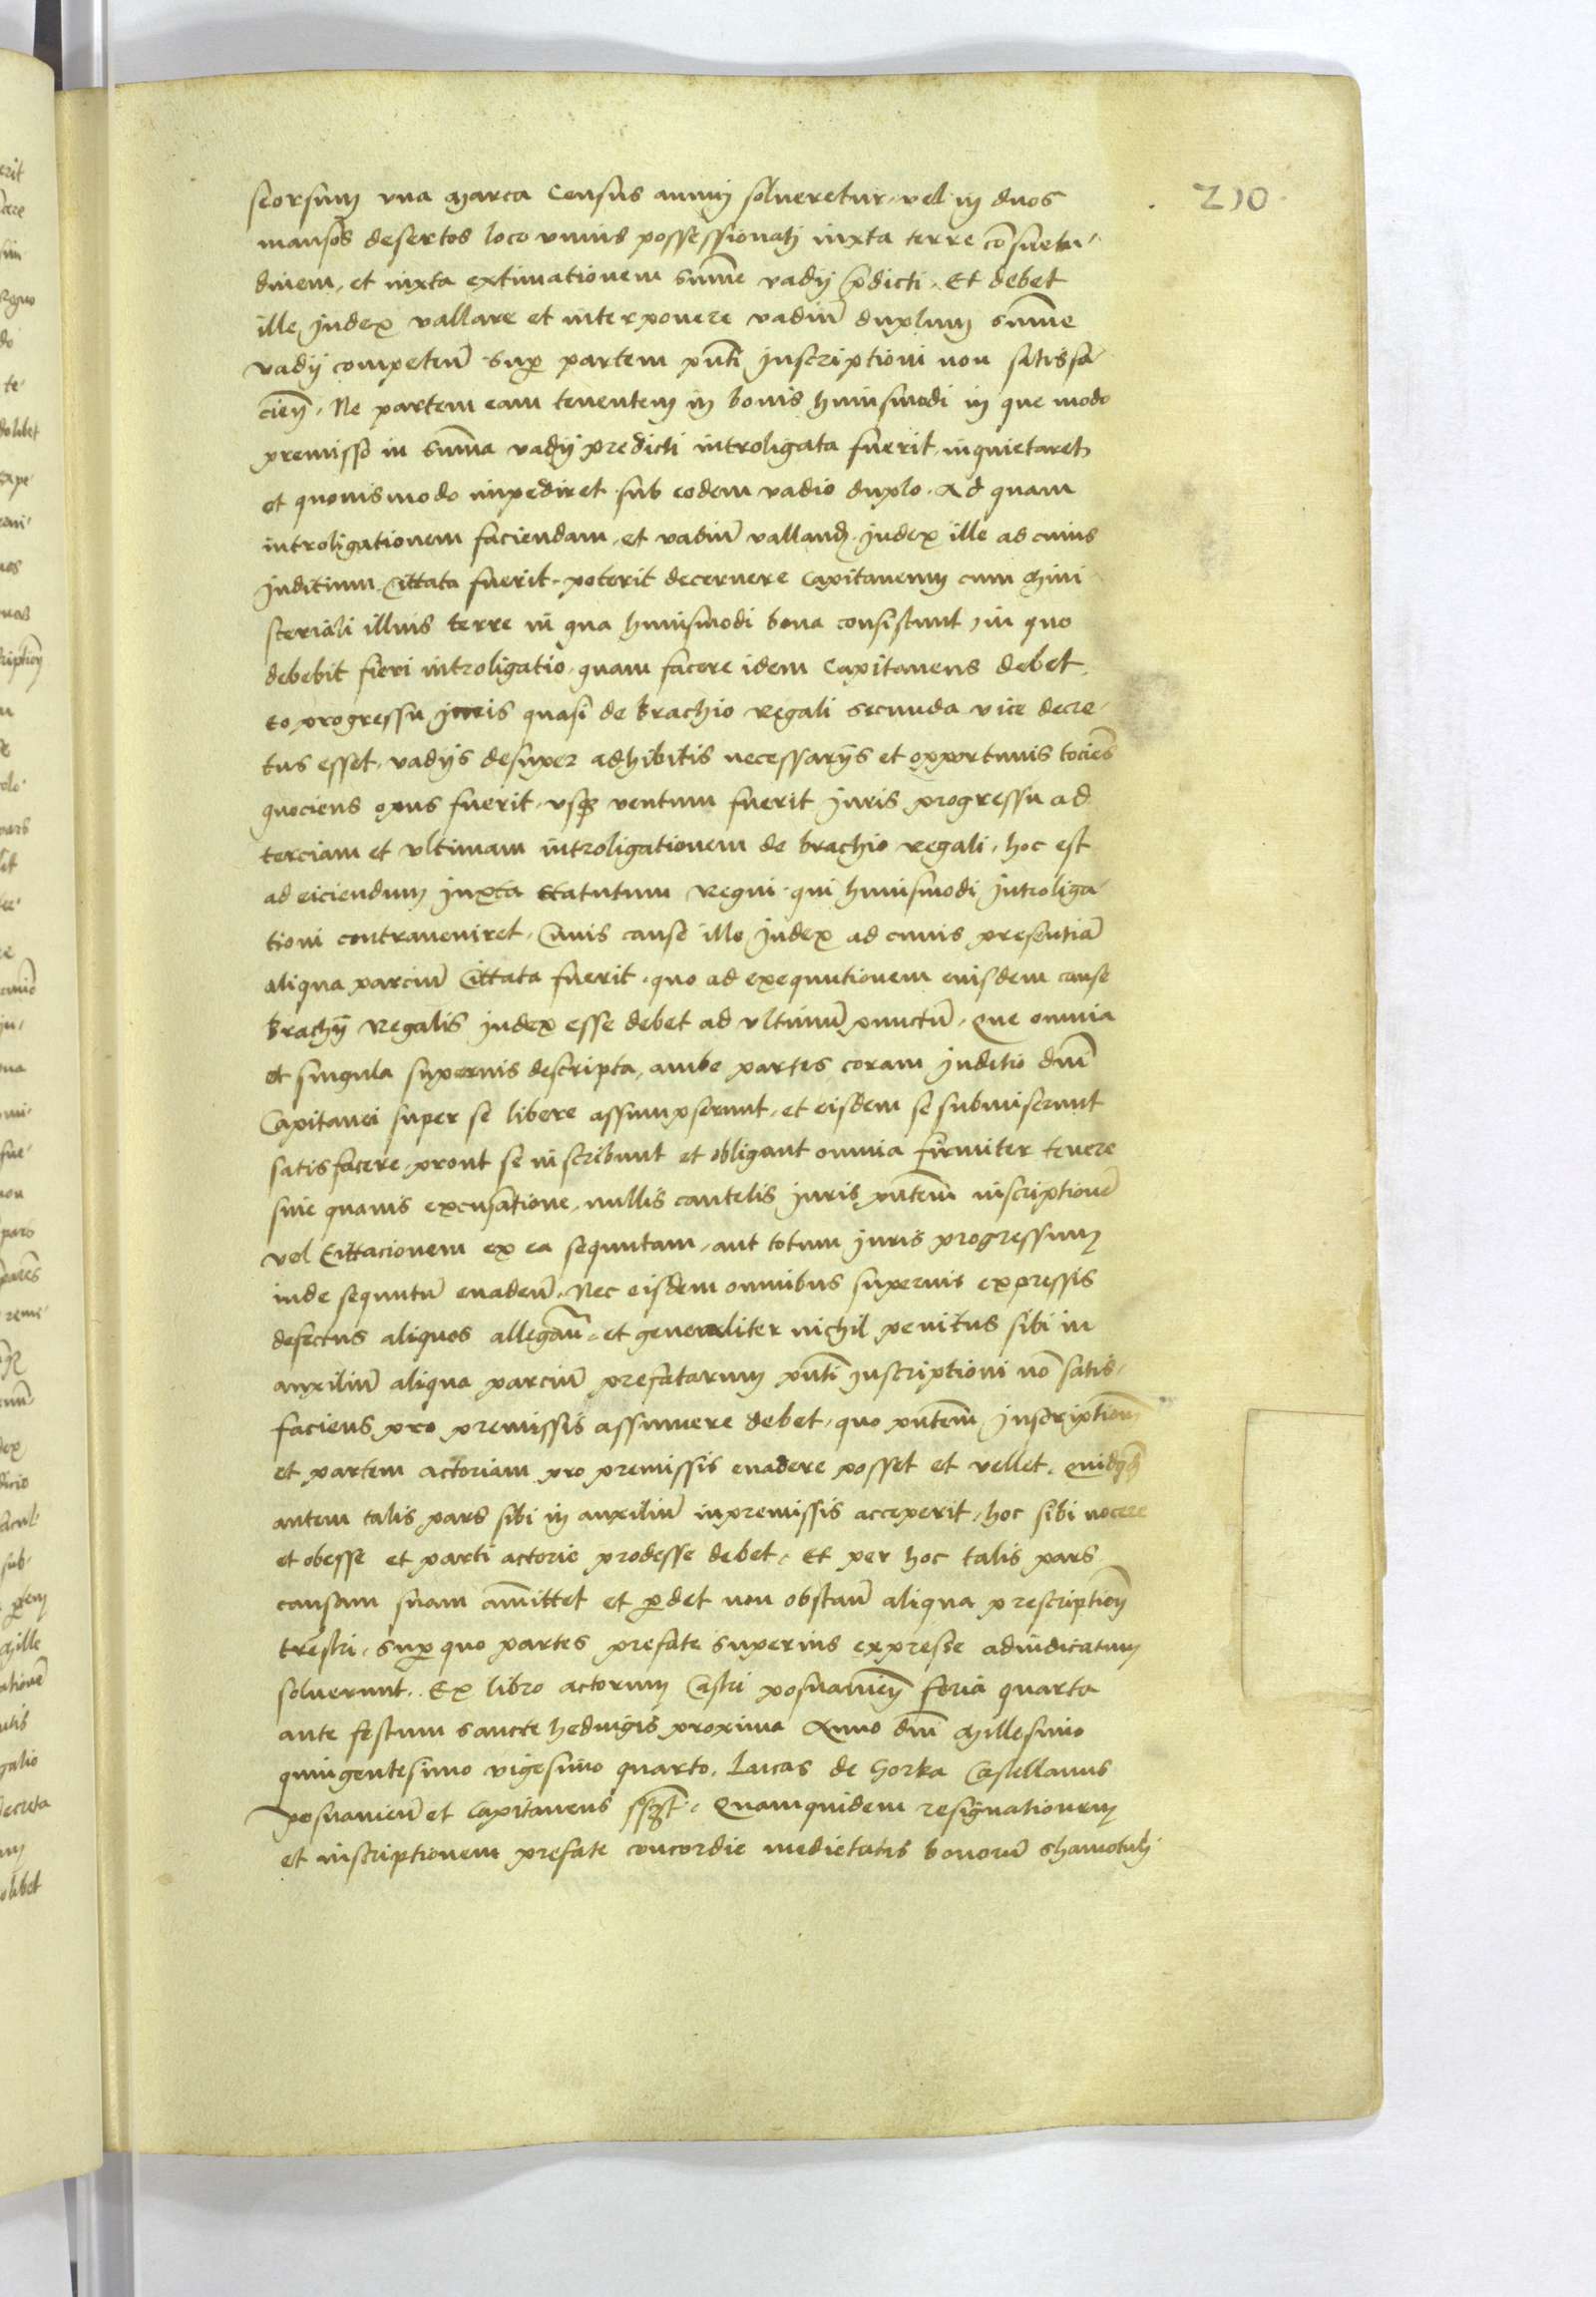 210
seorsum una marca Census annui solveretur, vel in duos
mansos desertos loco unius possessionati iuxta terre cōsuetu-
dinem, et iuxta extimationem summe vadij p̄dicti. Et debet
ille Judex vallare et interponere vadiū duplum summe
vadij competeñ sup partem pnti Inscriptioni non satisfa-
cieñ. Ne partem eam tenentem in bonis huiusmodi in que modo
premisso in summa vadij predicti introligata fuerit, inquietaret
et quovismodo impediret sub eodem vadio duplo. Ad quam
introligationem faciendam, et vadiū valland Judex ille ad cuius
Juditium Cittata fuerit, poterit decernere Capitaneum cum Mini
steriali illius terre in qua huiusmodi bona consistunt, in quo
debebit fieri introligatio, quam facere idem Capitaneus debet
eo progressu Juris quasi de brachio Regali secunda vice decre-
tus esset, vadijs desuper adhibitis necessarijs et opportunis tociēs
quociens opus fuerit, usq ventum fuerit Juris progressu ad
terciam et ultimam introligationem de brachio regali, hoc est
ad eiciendum Juxta statutum Regni, qui huiusmodi Introliga-
tioni contraveniret, Cuius cause ille Judex ad cuius presentiā
aliqua parciū Cittata fuerit, quo ad exequutionem eiusdem cause
brachij Regalis Judex esse debet ad ultimū punctū, Que omnia
et singula superius descripta, ambe partes coram Juditio dnī
Capitanei super se libere assumpserunt, et eisdem se submiserunt
satisfacere, prout se inscribunt et obligant omnia firmiter tenere
sine quavis excusatione, nullis cautelis Juris pntem inscriptionē
vel Cittacionem ex ea sequutam, aut totum Juris progressum
inde sequutū evadeñ. Nec eisdem omnibus superius expressis
defectus aliquos allegañ, et generaliter nichil penitus sibi in
auxiliū aliqua parciū prefatarum pnti Inscriptioni nō satis-
faciens pro premissis assumere debet, quo pntem Inscriptionē
et partem actoriam pro premissis evadere posset et vellet. Quidqd
autem talis pars sibi in auxiliū in premissis acceperit, hoc sibi nocere
et obesse et parti actorie prodesse debet, Et per hoc talis pars
causam suam amittet et pdet non obstañ aliqua prescriptioñ
trestri, sup quo partes prefate superius expresse adiudicatum
solverunt. Ex libro actorum Castri posnanieñ feria quarta
ante festum sancte hedvigis proxima Anno dnī Millesimo
quingentesimo vigesimo quarto. Lucas de Gorka Castellanus
posnanieñ et Capitaneus sspt. Quamquidem resignationem
et inscriptionem prefate concordie medietatis bonorū shamotuli